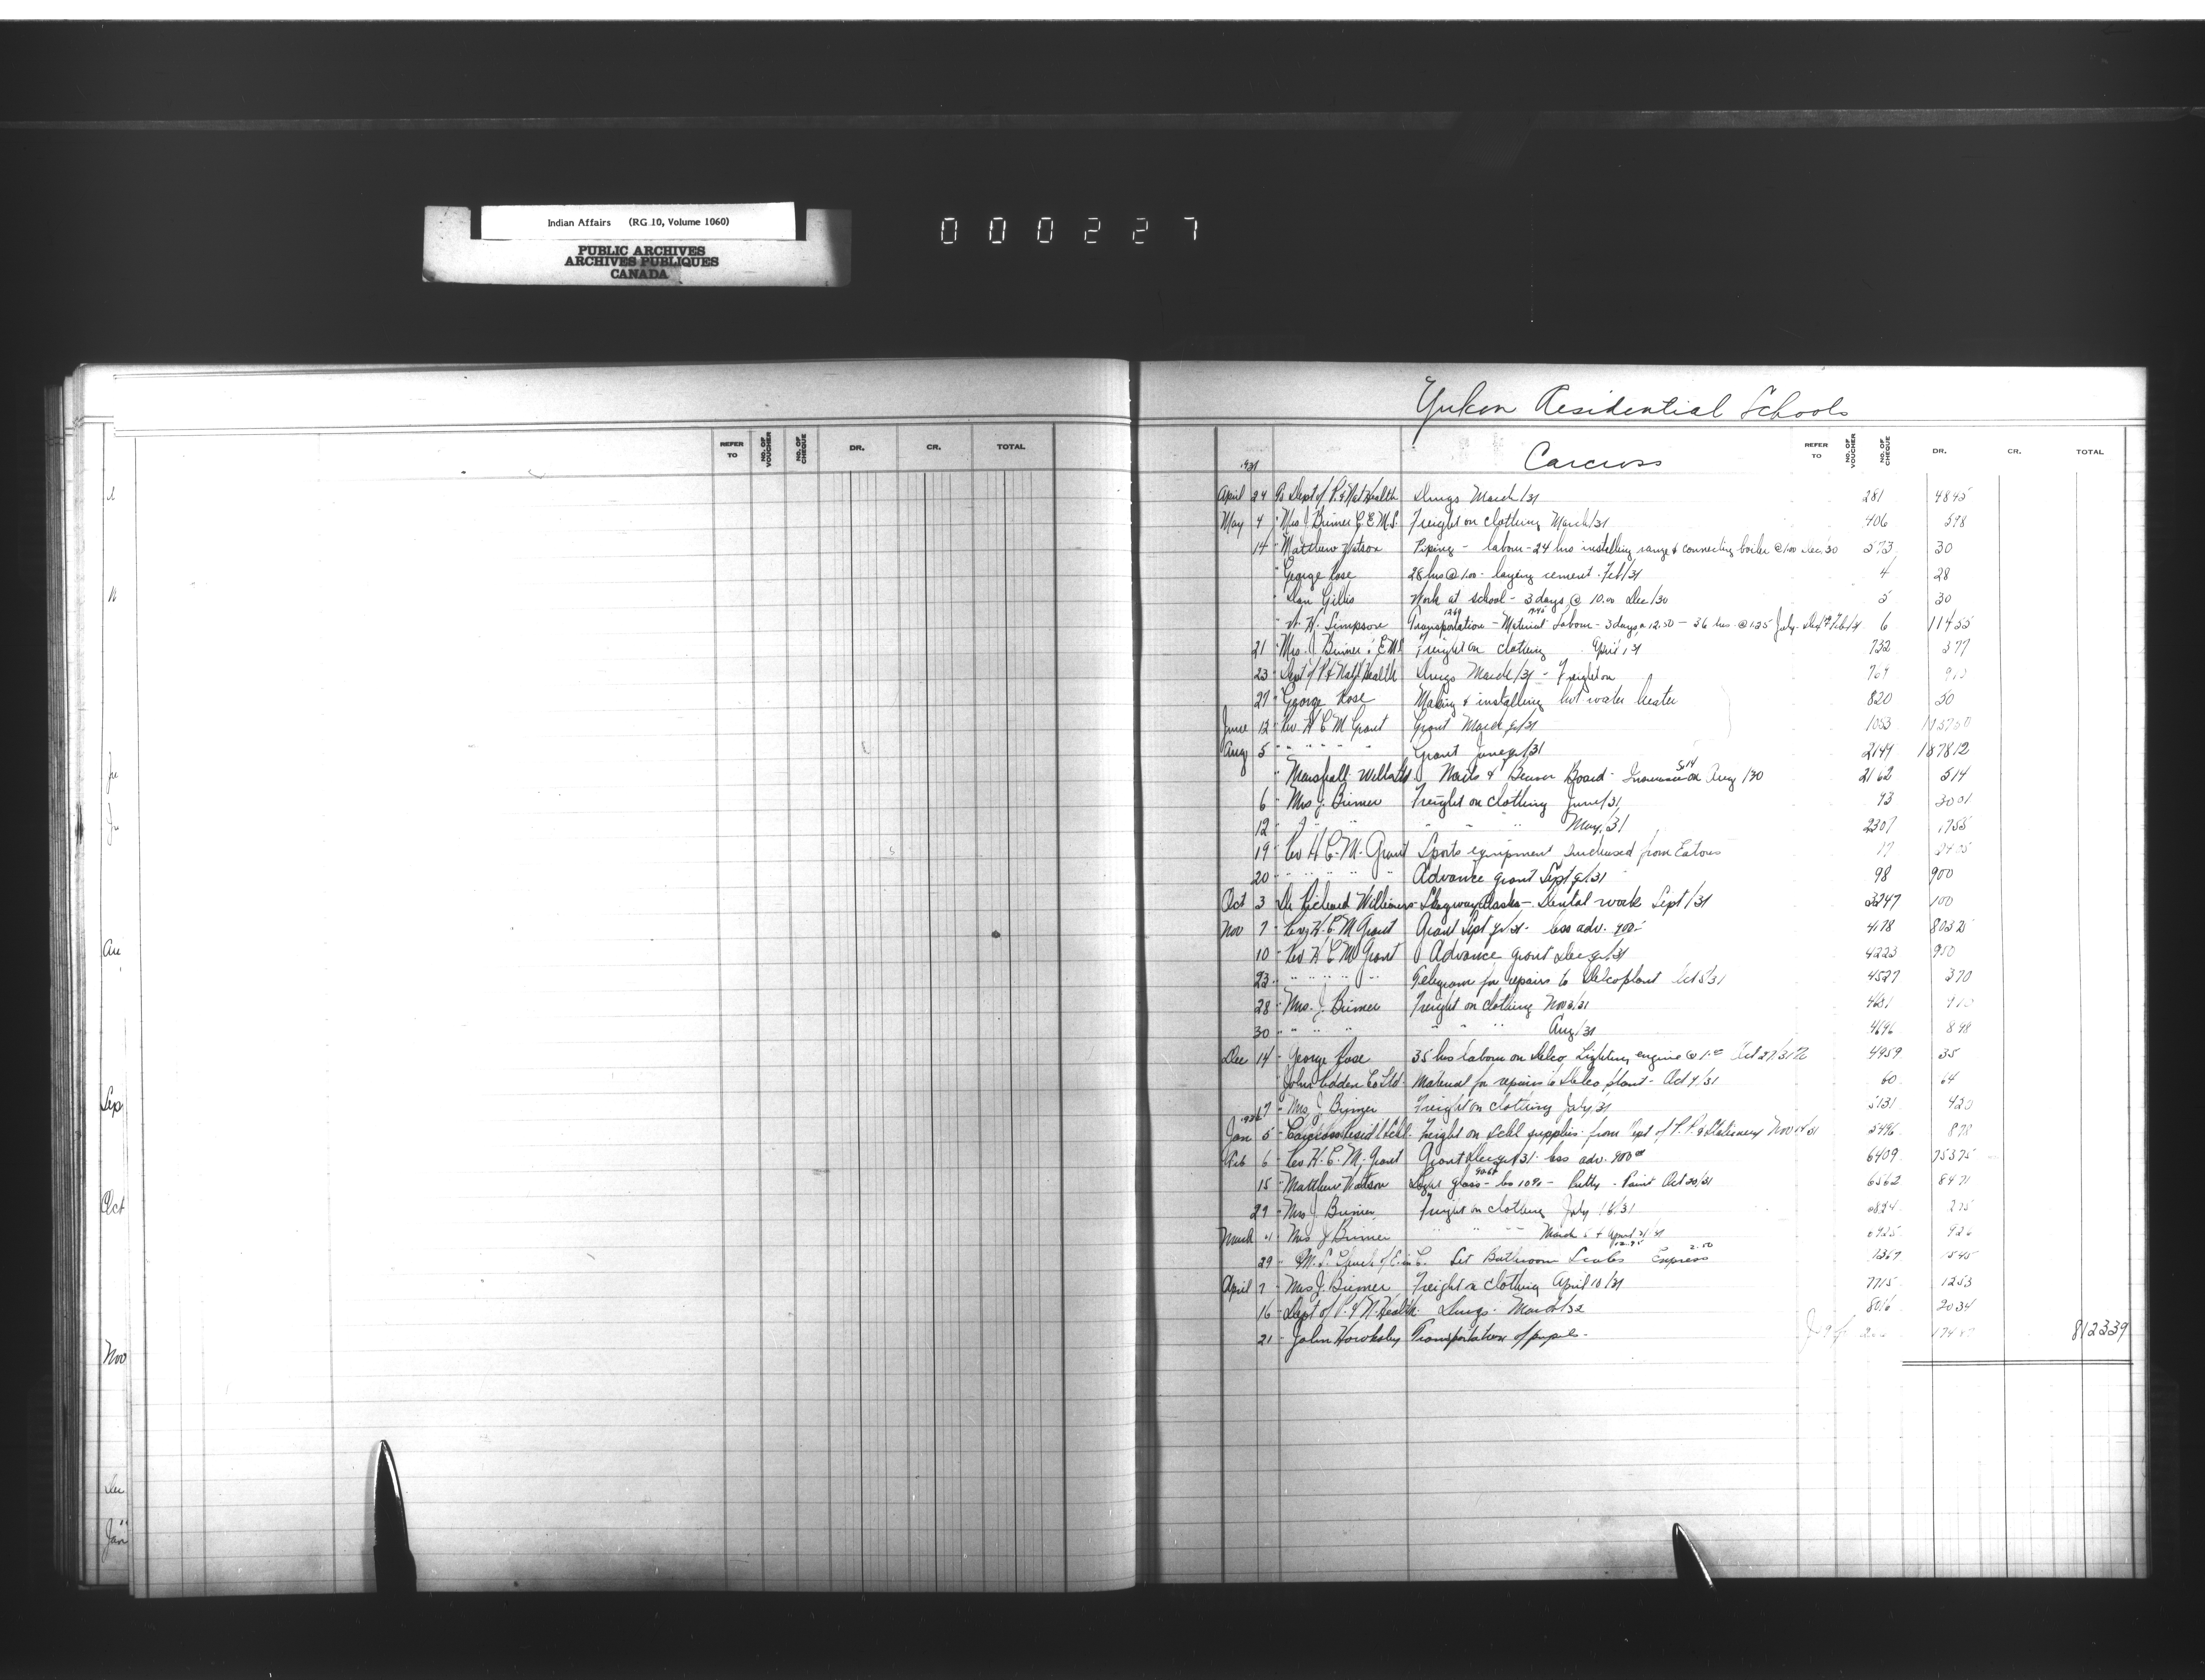 Indian Affairs (RG 10, Volume 1060)
PUBLIC ARCHIVES
ARCHIVES PUBLIQUES
CANADA
000227
REFER TO NO. OF VOUCHER NO. OF CHEQUE DR. CR. TOTAL
Sep
Oct
Nov
Dec
Jan
Yukon Residential Schools
Carcross
REFER TO NO. OF VOUCHER NO. OF CHEQUE DR. CR. TOTAL
1931
April 24 To Dept of P. & Nat Health Drugs March/31 281 4845
May 4 " Mrs. J. Brimer C.E.M.S. Freight on clothing March/31 406 598
14 " Matthew Watson Piping - labour - 24 hrs installing range & connecting boiler @ 1.00 Dec/30 573 30
" George Rose 28 hrs @ 1.00 - laying cement - Feb/31 4 28
" Dan Gillis Work at school - 3 days @ 10.00 Dec/30 5 30
" W. H. Simpson Transportation - Material Labour - 3 days @ 12.50 - 36 hrs @ 1.25 July. 6 11455
21 " Mrs. J. Brimer E.M.S. Freight on clothing April/31 732 377
23 " Dept of P. & Nat'l Health Drugs March/31 - Freight on
27 " George Rose Making & installing hot water heater 820 50
June 12 " Rev. H C M Grant Grant March qr/31 1053
Aug 5 " " " " " Grant June qr/31 2149 187812
" Marshall Nails & Beaver Board - on Aug/30 2162 514
6 " Mrs J. Brimer Freight on clothing June/31 93 3001
12 " " " " " " May/31 2307 1755
19 " Rev H. C. M. Grant Sports equipment purchased from Eatons 17
20 " " " " " Advance grant Sept qr/31 98 900
Oct 3 Dr Richard Williams - Skagway Alaska - Dental work Sept/31 3247 100
Nov 7 " Rev H. C. M Grant Grant Sept qr/31 - less adv. 900 - 4178 80325
10 " Rev H C M Grant Advance grant Dec qr/31 4223 900
23 " " " " " Telegram for repairs to Delco plant Oct 5/31 4527 370
28 " Mrs. J. Brimer Freight on clothing Nov 3/31 4631
30 " " " " " " Aug/31 4696 898
Dec 14 " George Rose 35 hrs labour on Delco Lighting engine @ 1.00 Oct 27/31 4959 35
" John Ltd - Material for repairs to Delco plant - Oct 9/31 60 64
17 " Mrs J. Brimer Freight on clothing July/31 5131 420
1932
Jan 5 " Carcross Resid'l Schl - Freight on Schl supplies - from Dept of P. P. & Stationery Nov 14/31 5496 878
Feb 6 " Rev H. C. M. Grant Grant Dec qr/31 - less adv. 900 00 6409 75375
15 " Matthew Watson glass - less 10% - Putty - Paint Oct 20/31 6562 8471
29 " Mrs J Brimer Freight on clothing July 16/31
March 4 " Mrs J Brimer " " " March 6 & April 21/31
29 " Set Bathroom Scales Express 2.50 1545
April 7 " Mrs J. Brimer Freight on clothing April 10/31 7715 1253
16 " Dept of P. & N. Health. Drugs. March/32 8016 2034
21 " John Hawksley Transportation of pupils - 812339